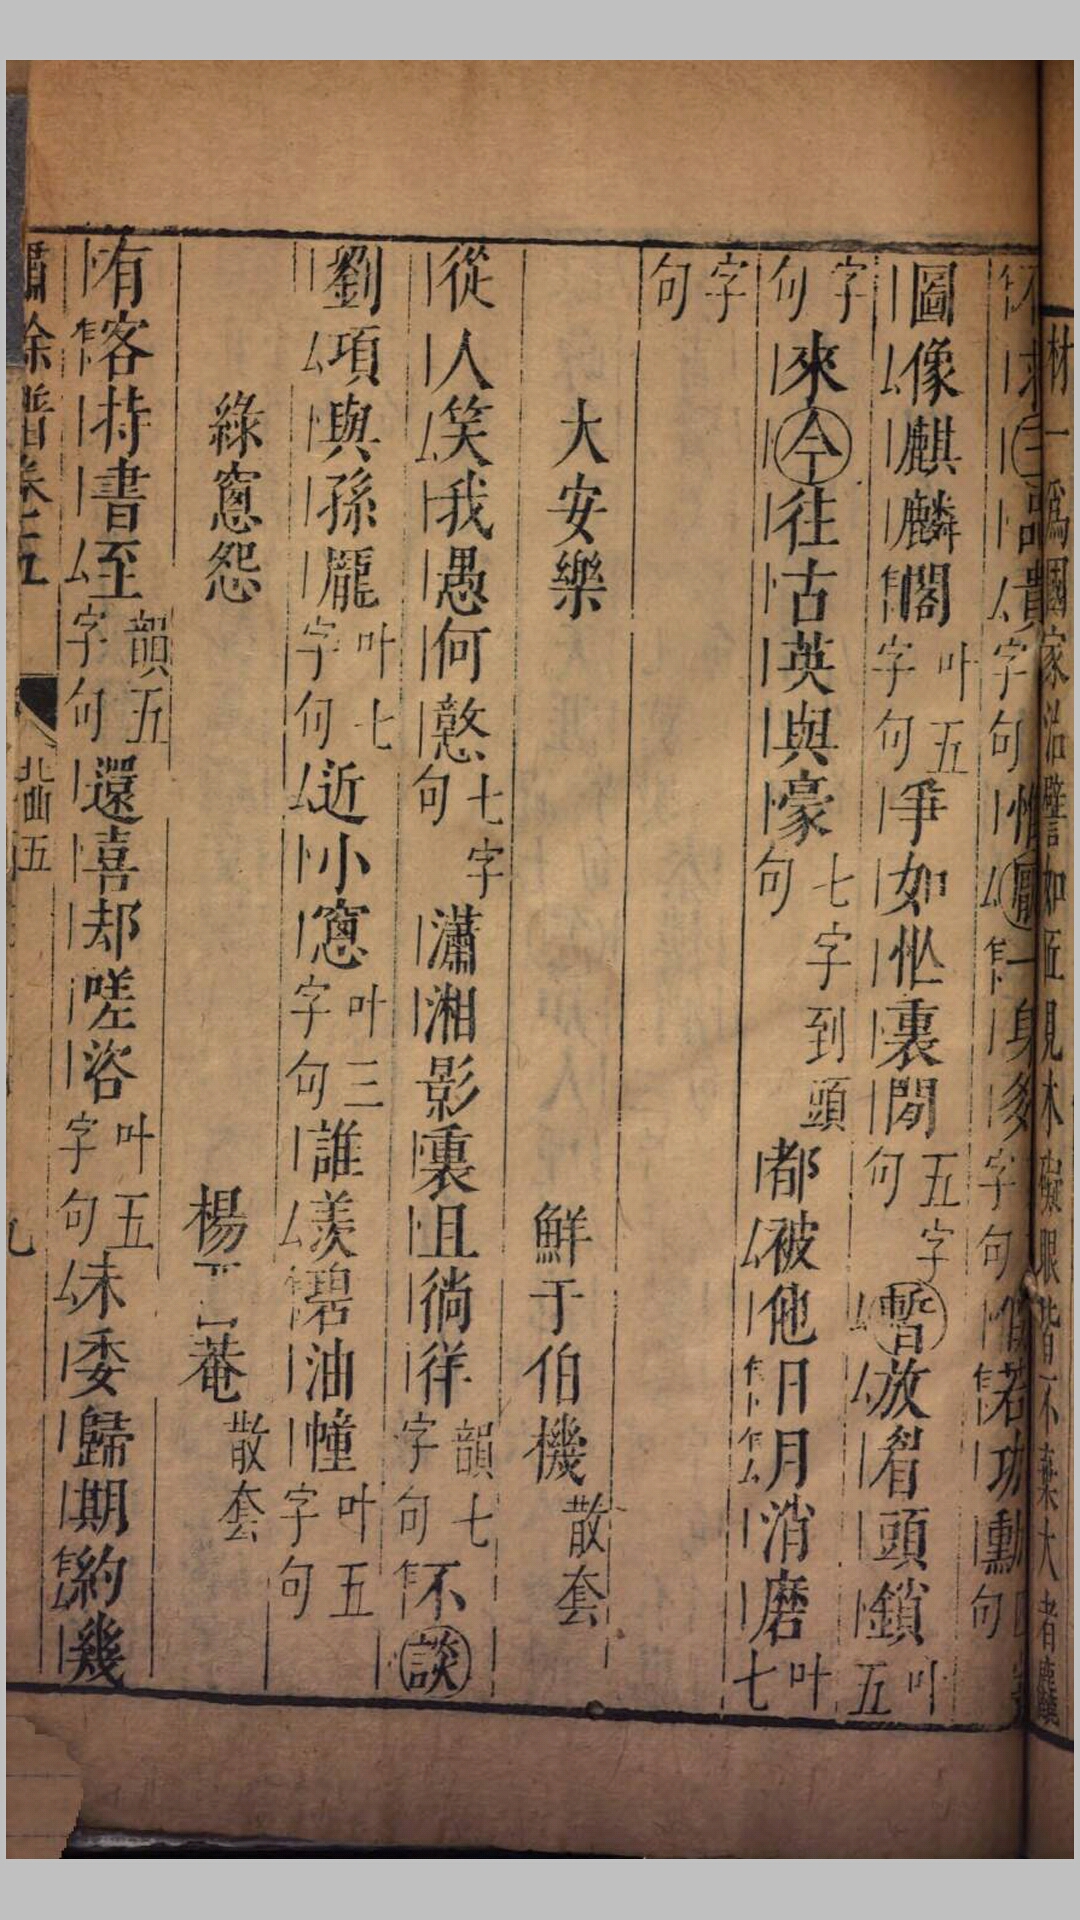 材一爲國家治譬如匠視木礙眼皆不棄大者
不求三詔貴字句惟願一身多字句假若功勳句
圖像麒麟閣叶五字句爭如忙裏閒五字句暫放眉頭鎖叶五
字句來今往古英與豪七字句到頭都被他日月消磨叶七
字句
大安樂 鮮于伯機散套
從人笑我愚何戇七字句瀟湘影裏且徜徉韻七字句不談
劉項與孫龐叶七字句近小窻叶三字句誰羨碧油幢叶五字句
綠窻怨 楊庵散套
有客持書至韻五字句還喜却嗟咨叶五字句未委歸期約幾
嘯餘譜卷五 北曲五 九